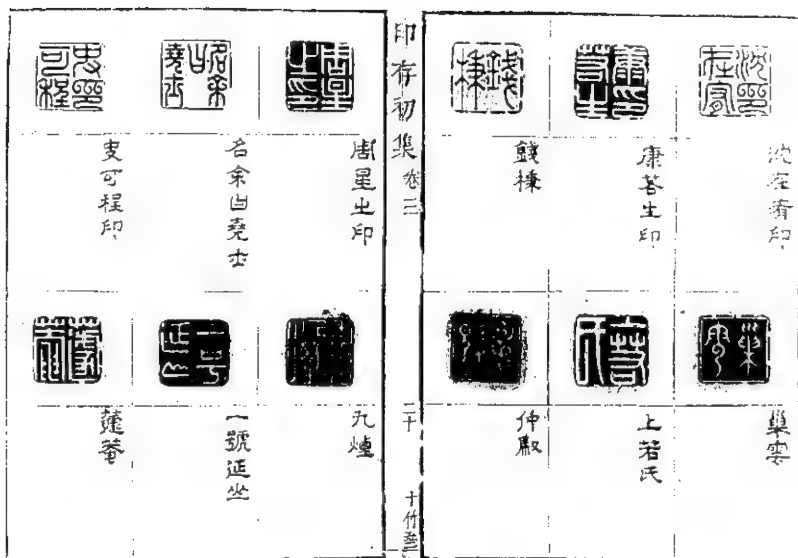 沈在宥印
康若生印
錢棅
巢雲
上若氏
仲馭
印存初集 卷三
二十
十竹齋
周星之印
名余曰堯士
史可程印
九煙
一號延
蘧菴